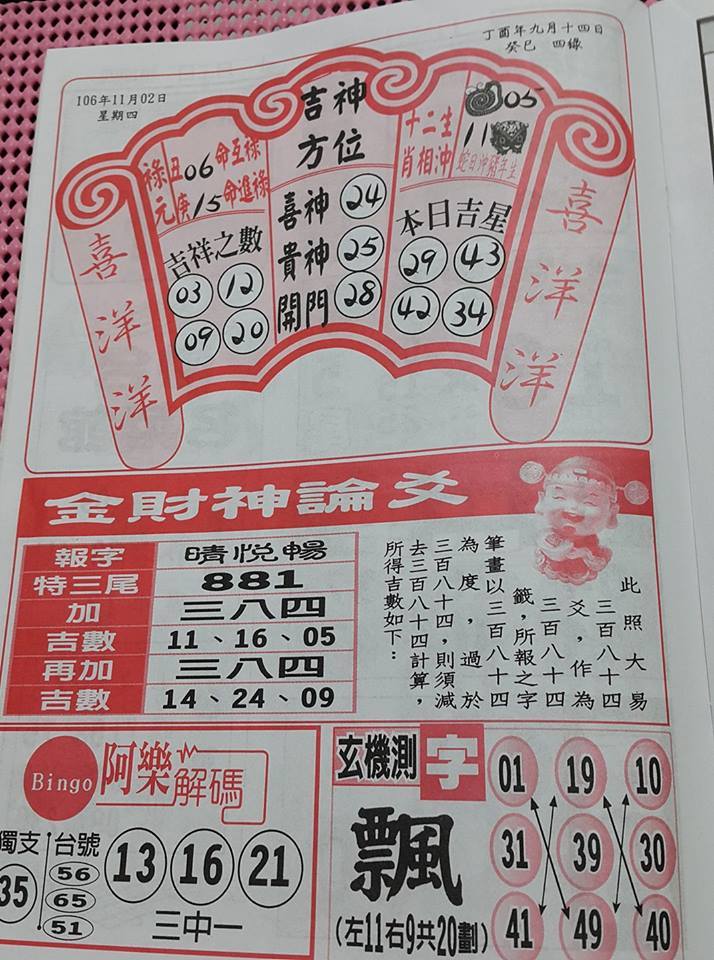 丁酉年九月十四日
癸巳 四綠
106年11月02日
星期四
祿元
丑06命互祿
庚15命進祿
吉祥之數
03 12
09 20
吉神方位
喜神 24
貴神 25
開門 28
十二生肖相沖
05
11
蛇日沖豬年生
本日吉星
29 43
42 34
喜洋洋
喜洋洋
金財神論爻
報字 晴悅暢
特三尾 881
加 三八四
吉數 11、16、05
再加 三八四
吉數 14、24、09
此照大易
三百八十四
爻，作為
三百八十四
籤，所報之字
筆畫以三百八十四
為度，過於
三百八十四，則須減
去三百八十四計算，
所得吉數如下：
Bingo 阿樂解碼
獨支 35
台號 56 65 51
13 16 21
三中一
玄機測字
飄
(左11右9共20劃)
01 19 10
31 39 30
41 49 40